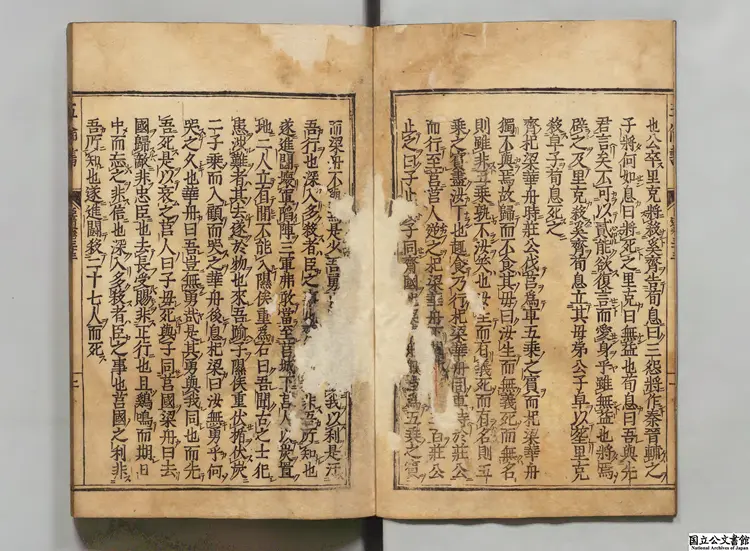 也公卒里克將殺奚齊先告荀息曰三怨將作秦晉輔之
子將何如息曰將死之里克曰無益也荀息曰吾與先
君言矣不可以貳能欲復言而愛身乎雖無益也將焉
辟之及里克殺奚齊荀息立其母弟公子卓以葬里克
殺卓子荀息死之
齊杞梁華舟時莊公伐莒為車五乘之賓而杞梁華舟
獨不與焉故歸而不食其母曰汝生而無義死而無名
則雖非五乘孰不汝笑也汝生而有義死而有名則五
乘之賓盡汝下也趣食乃行杞梁華舟同車侍於莊公
而行至莒莒人逆之杞梁華舟下三百莊公
止之曰子止子同齊國為五乘之賓
而梁舟不焉是少吾勇我以利是汙
吾行也深入多殺者臣之事非吾所知也
遂進鬪壞軍陷陣三軍弗敢當至莒城下莒人以炭置
地二人立有間不能入隰侯重為右曰吾聞古之士犯
患涉難者其去遂於物也來吾踰子隰侯重伏楯伏炭
二子乘而入顧而哭之華舟後息杞梁曰汝無勇乎何
哭之久也華舟曰吾豈無勇哉是其勇與我同也而先
吾死是以哀之莒人曰子毋死與子同莒國梁舟曰去
國歸敵非忠臣也去長受賜非正行也且雞鳴而期日
中而忘之非信也深入多殺者臣之事也莒國之利非
吾所知也遂進鬪殺二十七人而死
国立公文書館
National Archives of Japan